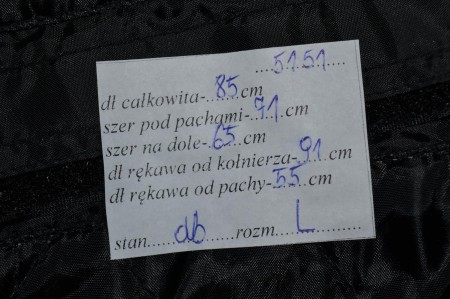 ....5151....
dł całkowita-..85..cm
szer pod pachami-..71..cm
szer na dole-..65..cm
dł rękawa od kolnierza-..91..cm
dł rękawa od pachy-..55..cm
stan......db......rozm....L..........